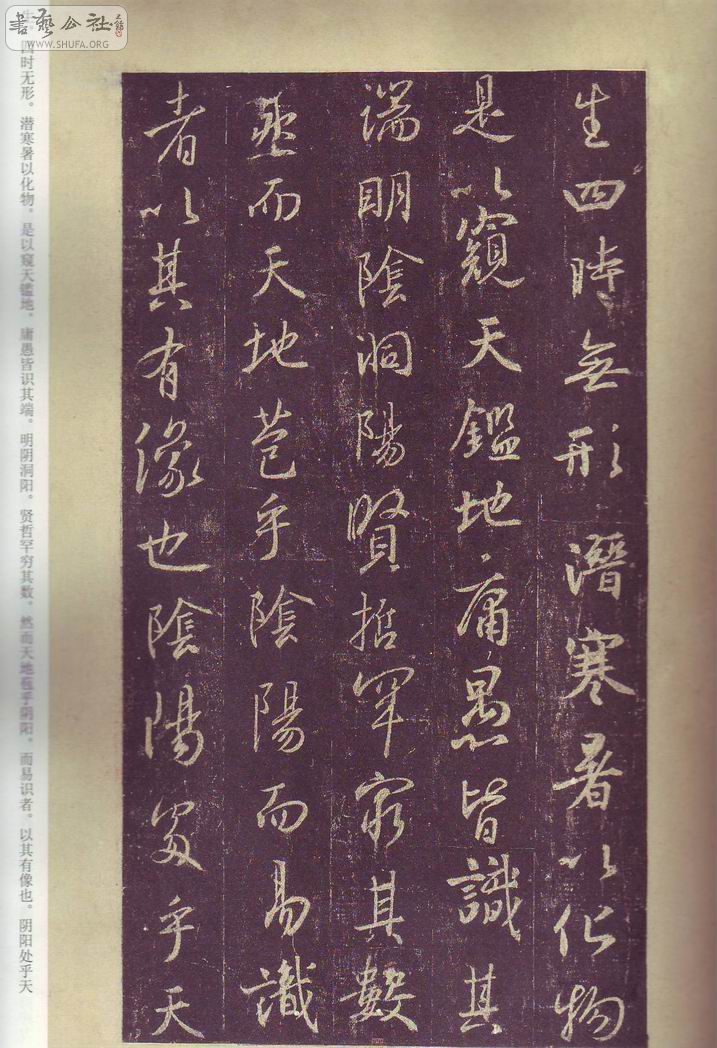 生四時無形潛寒暑以化物
是以窺天鑑地庸愚皆識其
端明陰洞陽賢哲罕窮其數
然而天地苞乎陰陽而易識
者以其有像也陰陽處乎天
生。四时无形。潜寒暑以化物。是以窥天鑑地。庸愚皆识其端。明阴洞阳。贤哲罕穷其数。然而天地苞乎阴阳。而易识者。以其有像也。阴阳处乎天
書藝公社
WWW.SHUFA.ORG